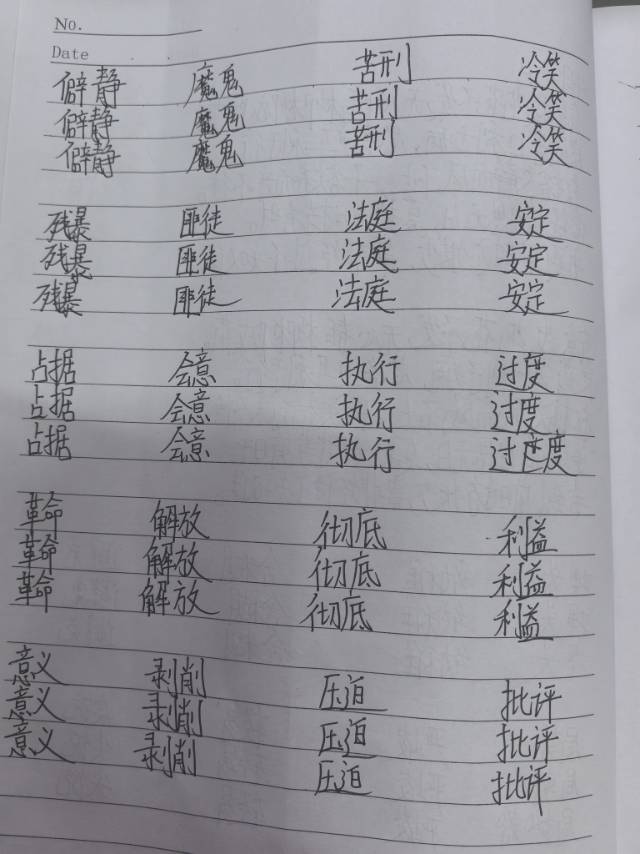 No.
Date
僻静 魔鬼 苦刑 冷笑
僻静 魔鬼 苦刑 冷笑
僻静 魔鬼 苦刑 冷笑
残暴 匪徒 法庭 安定
残暴 匪徒 法庭 安定
残暴 匪徒 法庭 安定
占据 会意 执行 过度
占据 会意 执行 过度
占据 会意 执行 过度
革命 解放 彻底 利益
革命 解放 彻底 利益
革命 解放 彻底 利益
意义 剥削 压迫 批评
意义 剥削 压迫 批评
意义 剥削 压迫 批评